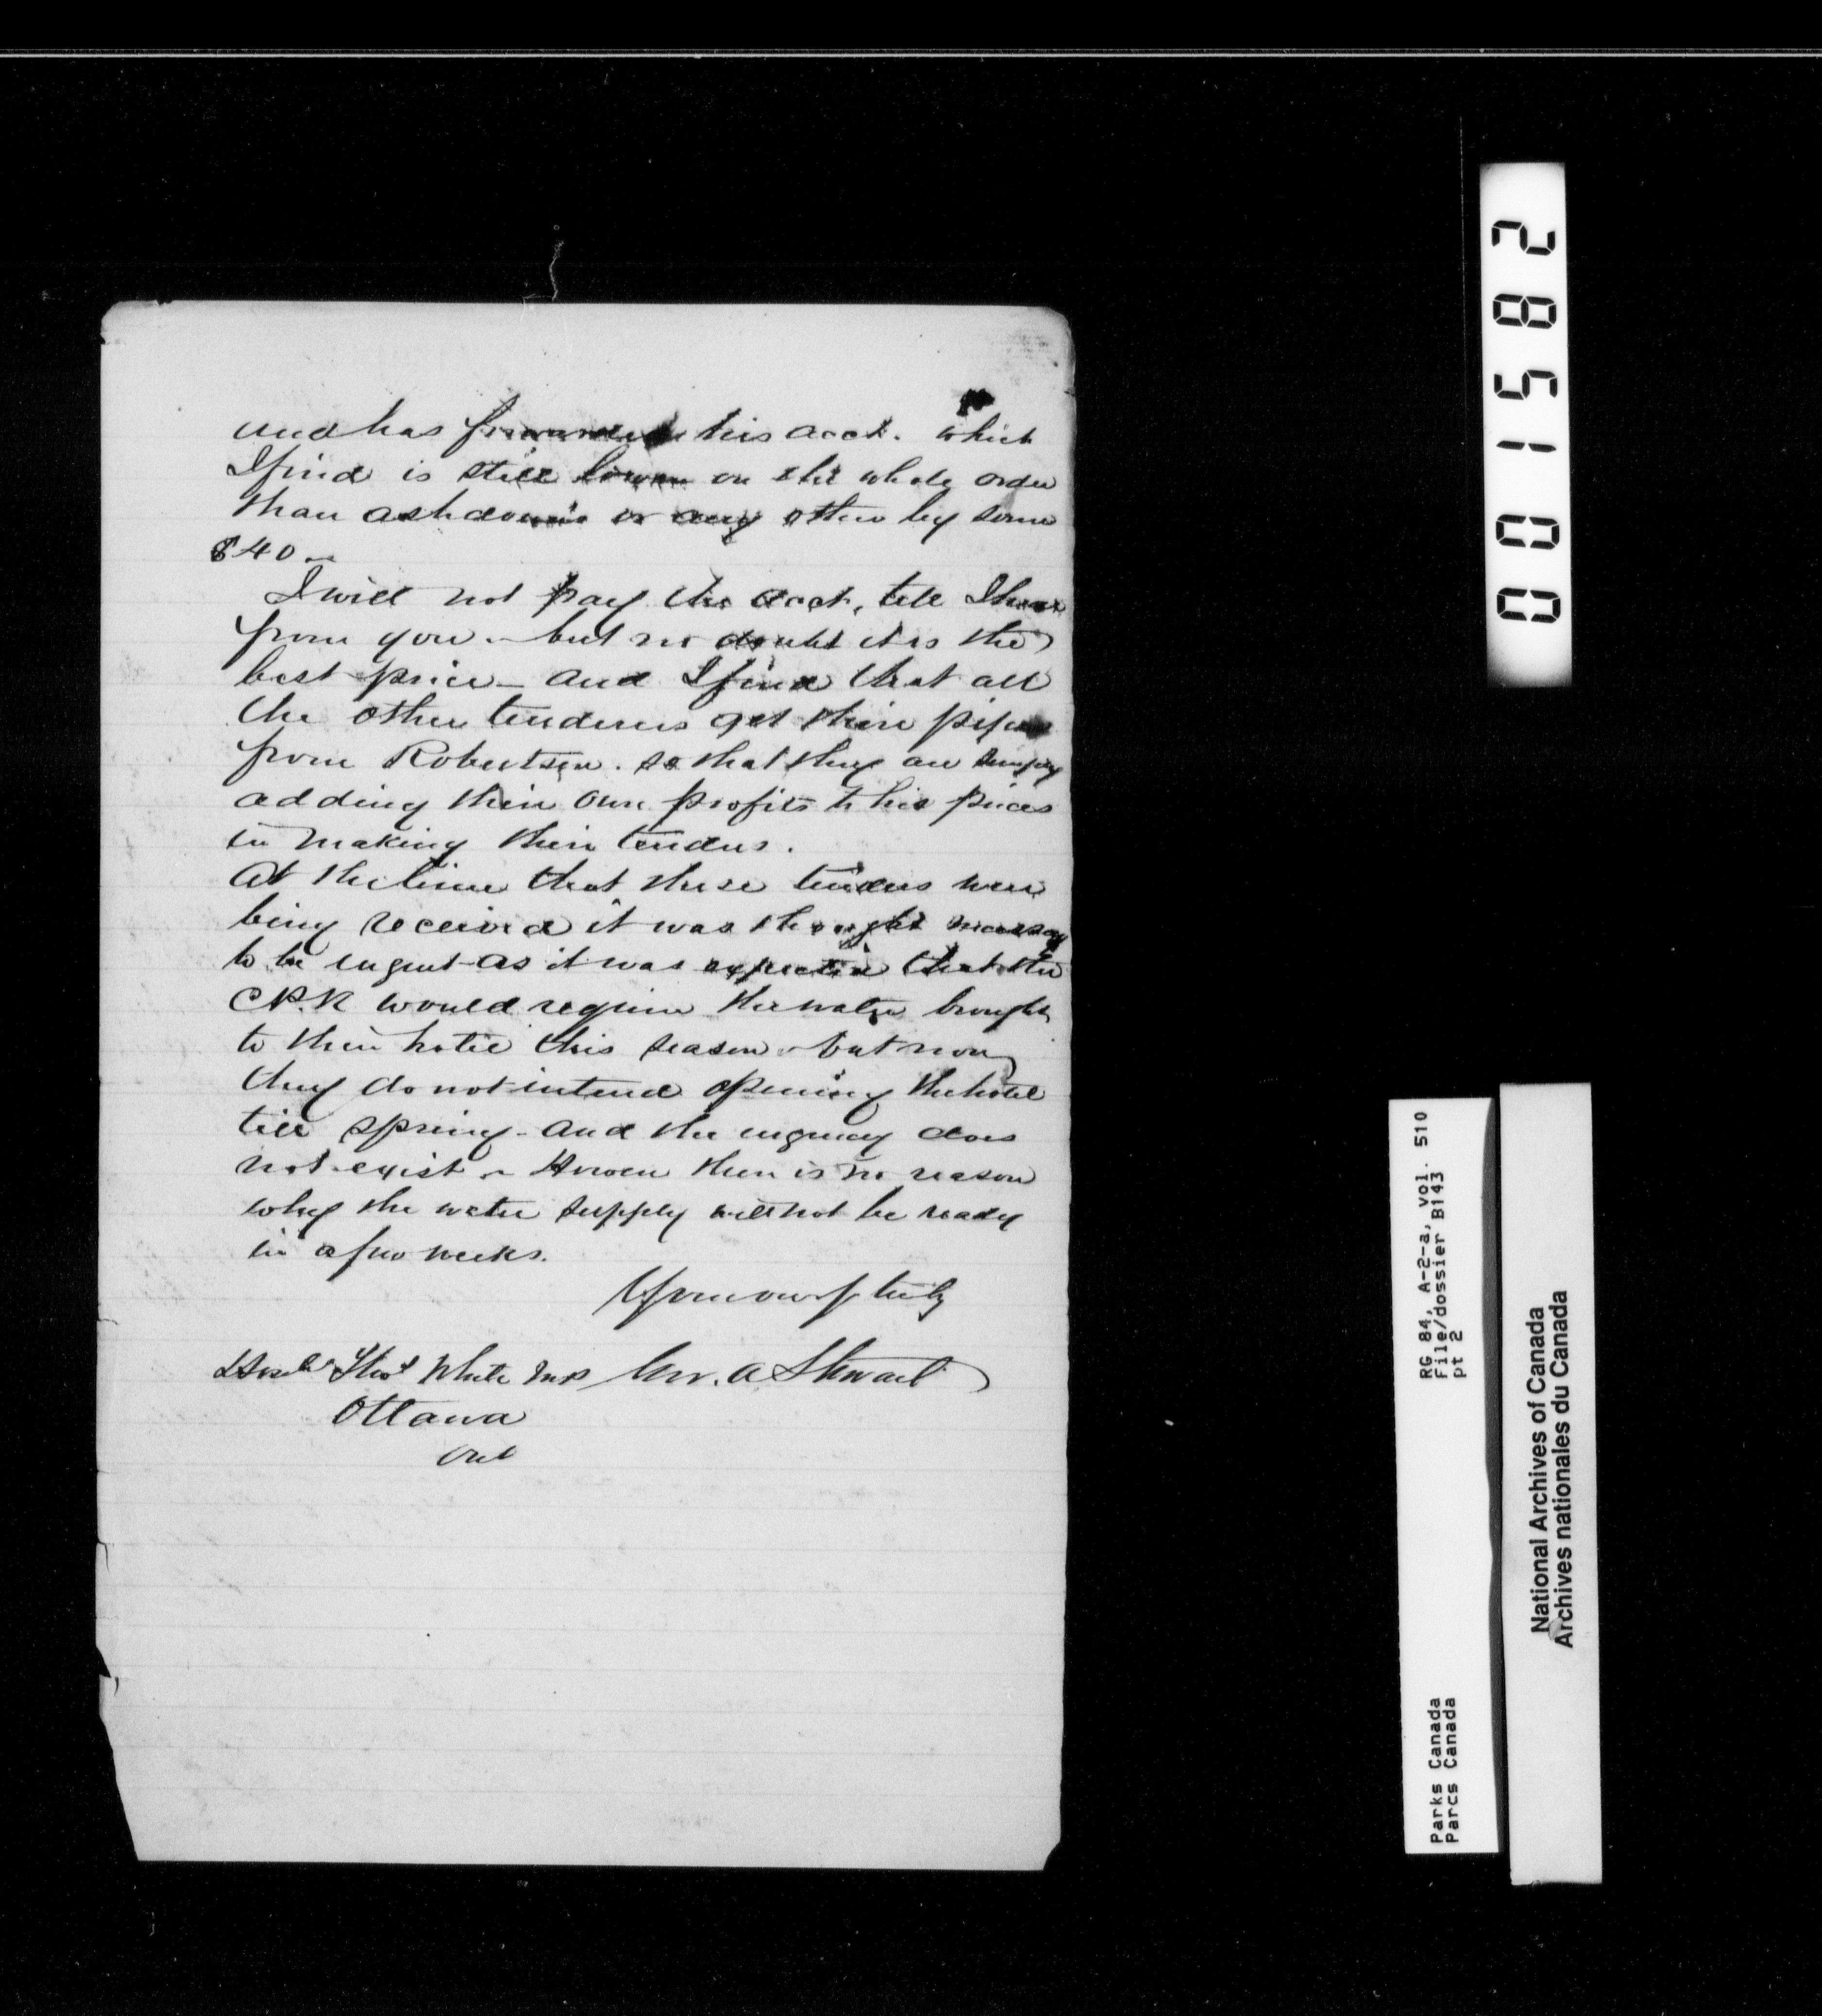 and has forwarded his acct. which
I find is still lower on the whole order
than Ashdown's or any other by some
$40 -
I will not pay the acct, till I hear
from you - but no doubt it is the
best price - and I find that all
the other tenderers get their pipes
from Robertson. so that they are simply
adding their own profits to his prices
in making their tenders.
At the time that these tenders were
being received it was thought necessary
to be urgent - as it was expected that the
CPR would require the water brought
to their hotel this season - but now
they do not intend opening the hotel
till spring - and the urgency does
not exist - However there is no reason
why the water supply will not be ready
in a few weeks.
Yours very truly
Honble Thos White M.P. Geo. A Stewart
Ottawa
Ont
001582
RG 84, A-2-a, vol. 510
File/dossier B143
pt 2
Parks Canada
Parcs Canada
National Archives of Canada
Archives nationales du Canada